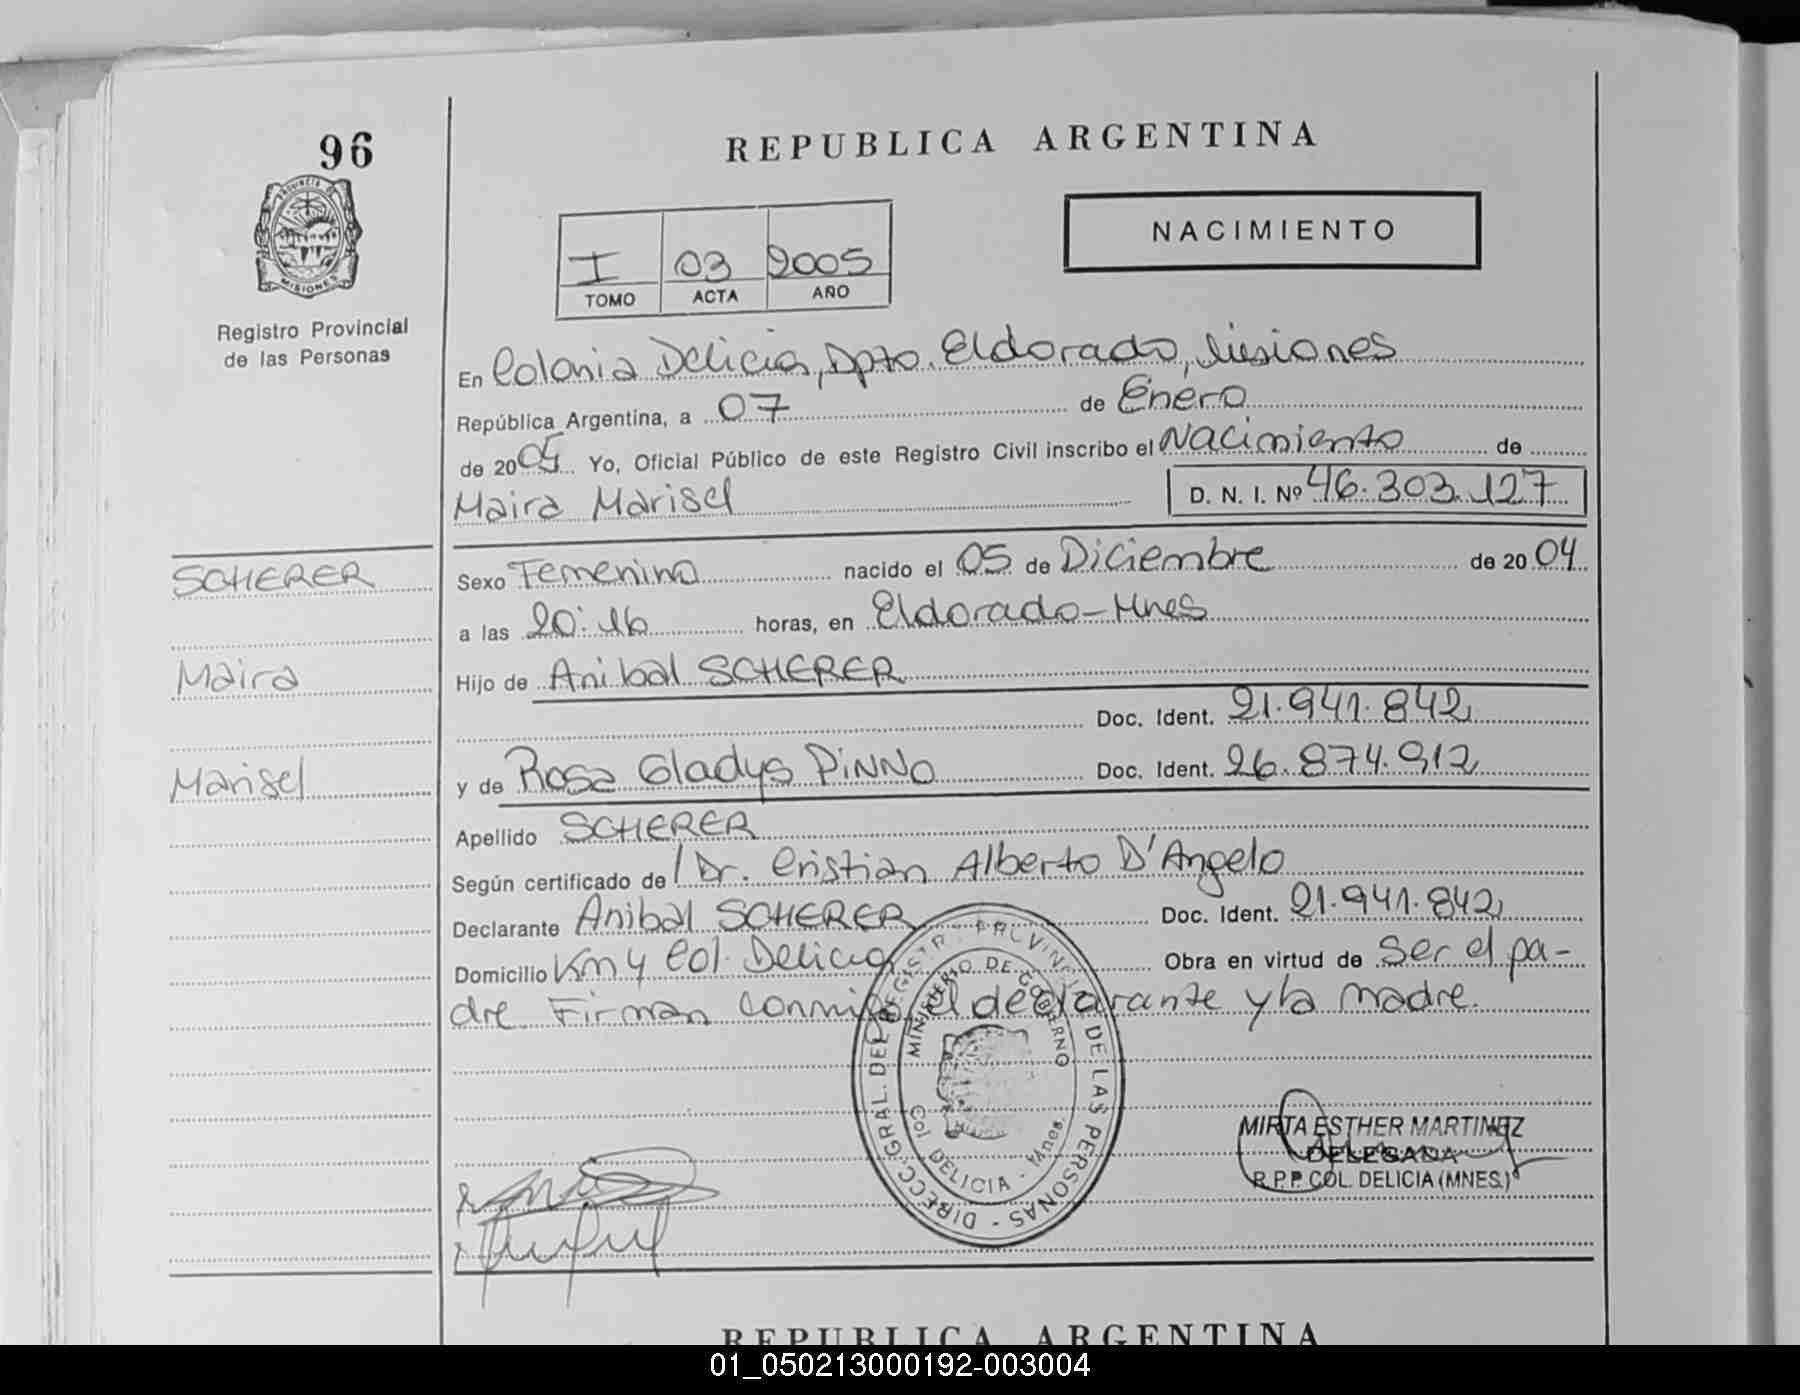 96
REPUBLICA ARGENTINA
PROVINCIA DE
MISIONES
Registro Provincial
de las Personas
NACIMIENTO
I 03 2005
TOMO ACTA AÑO
En Colonia Delicia, Dpto. Eldorado, Misiones
República Argentina, a 07 de Enero
de 2005 Yo, Oficial Público de este Registro Civil inscribo el Nacimiento de
Maira Marisel D. N. I. Nº 46.303.127
SCHERER
Maira
Marisel
Sexo Femenino nacido el 05 de Diciembre de 2004
a las 20:16 horas, en Eldorado-Mnes
Hijo de Anibal SCHERER
Doc. Ident. 21.941.842
y de Rosa Gladys PiNNo Doc. Ident. 26.874.912
Apellido SCHERER
Según certificado de Dr. Cristian Alberto D'Angelo
Declarante Anibal SCHERER Doc. Ident. 21.941.842
Domicilio Km 4 Col. Delicia Obra en virtud de Ser el pa-
dre. Firman conmigo el declarante y la madre.
DIRECC. GRAL. DEL REGISTR. PROVINCIAL DE LAS PERSONAS
MINISTERIO DE GOBIERNO
Col. DELICIA - Mnes.
MIRTA ESTHER MARTINEZ
DELEGADA
R.P.P. COL. DELICIA (MNES.)
REPUBLICA ARGENTINA
01_050213000192-003004